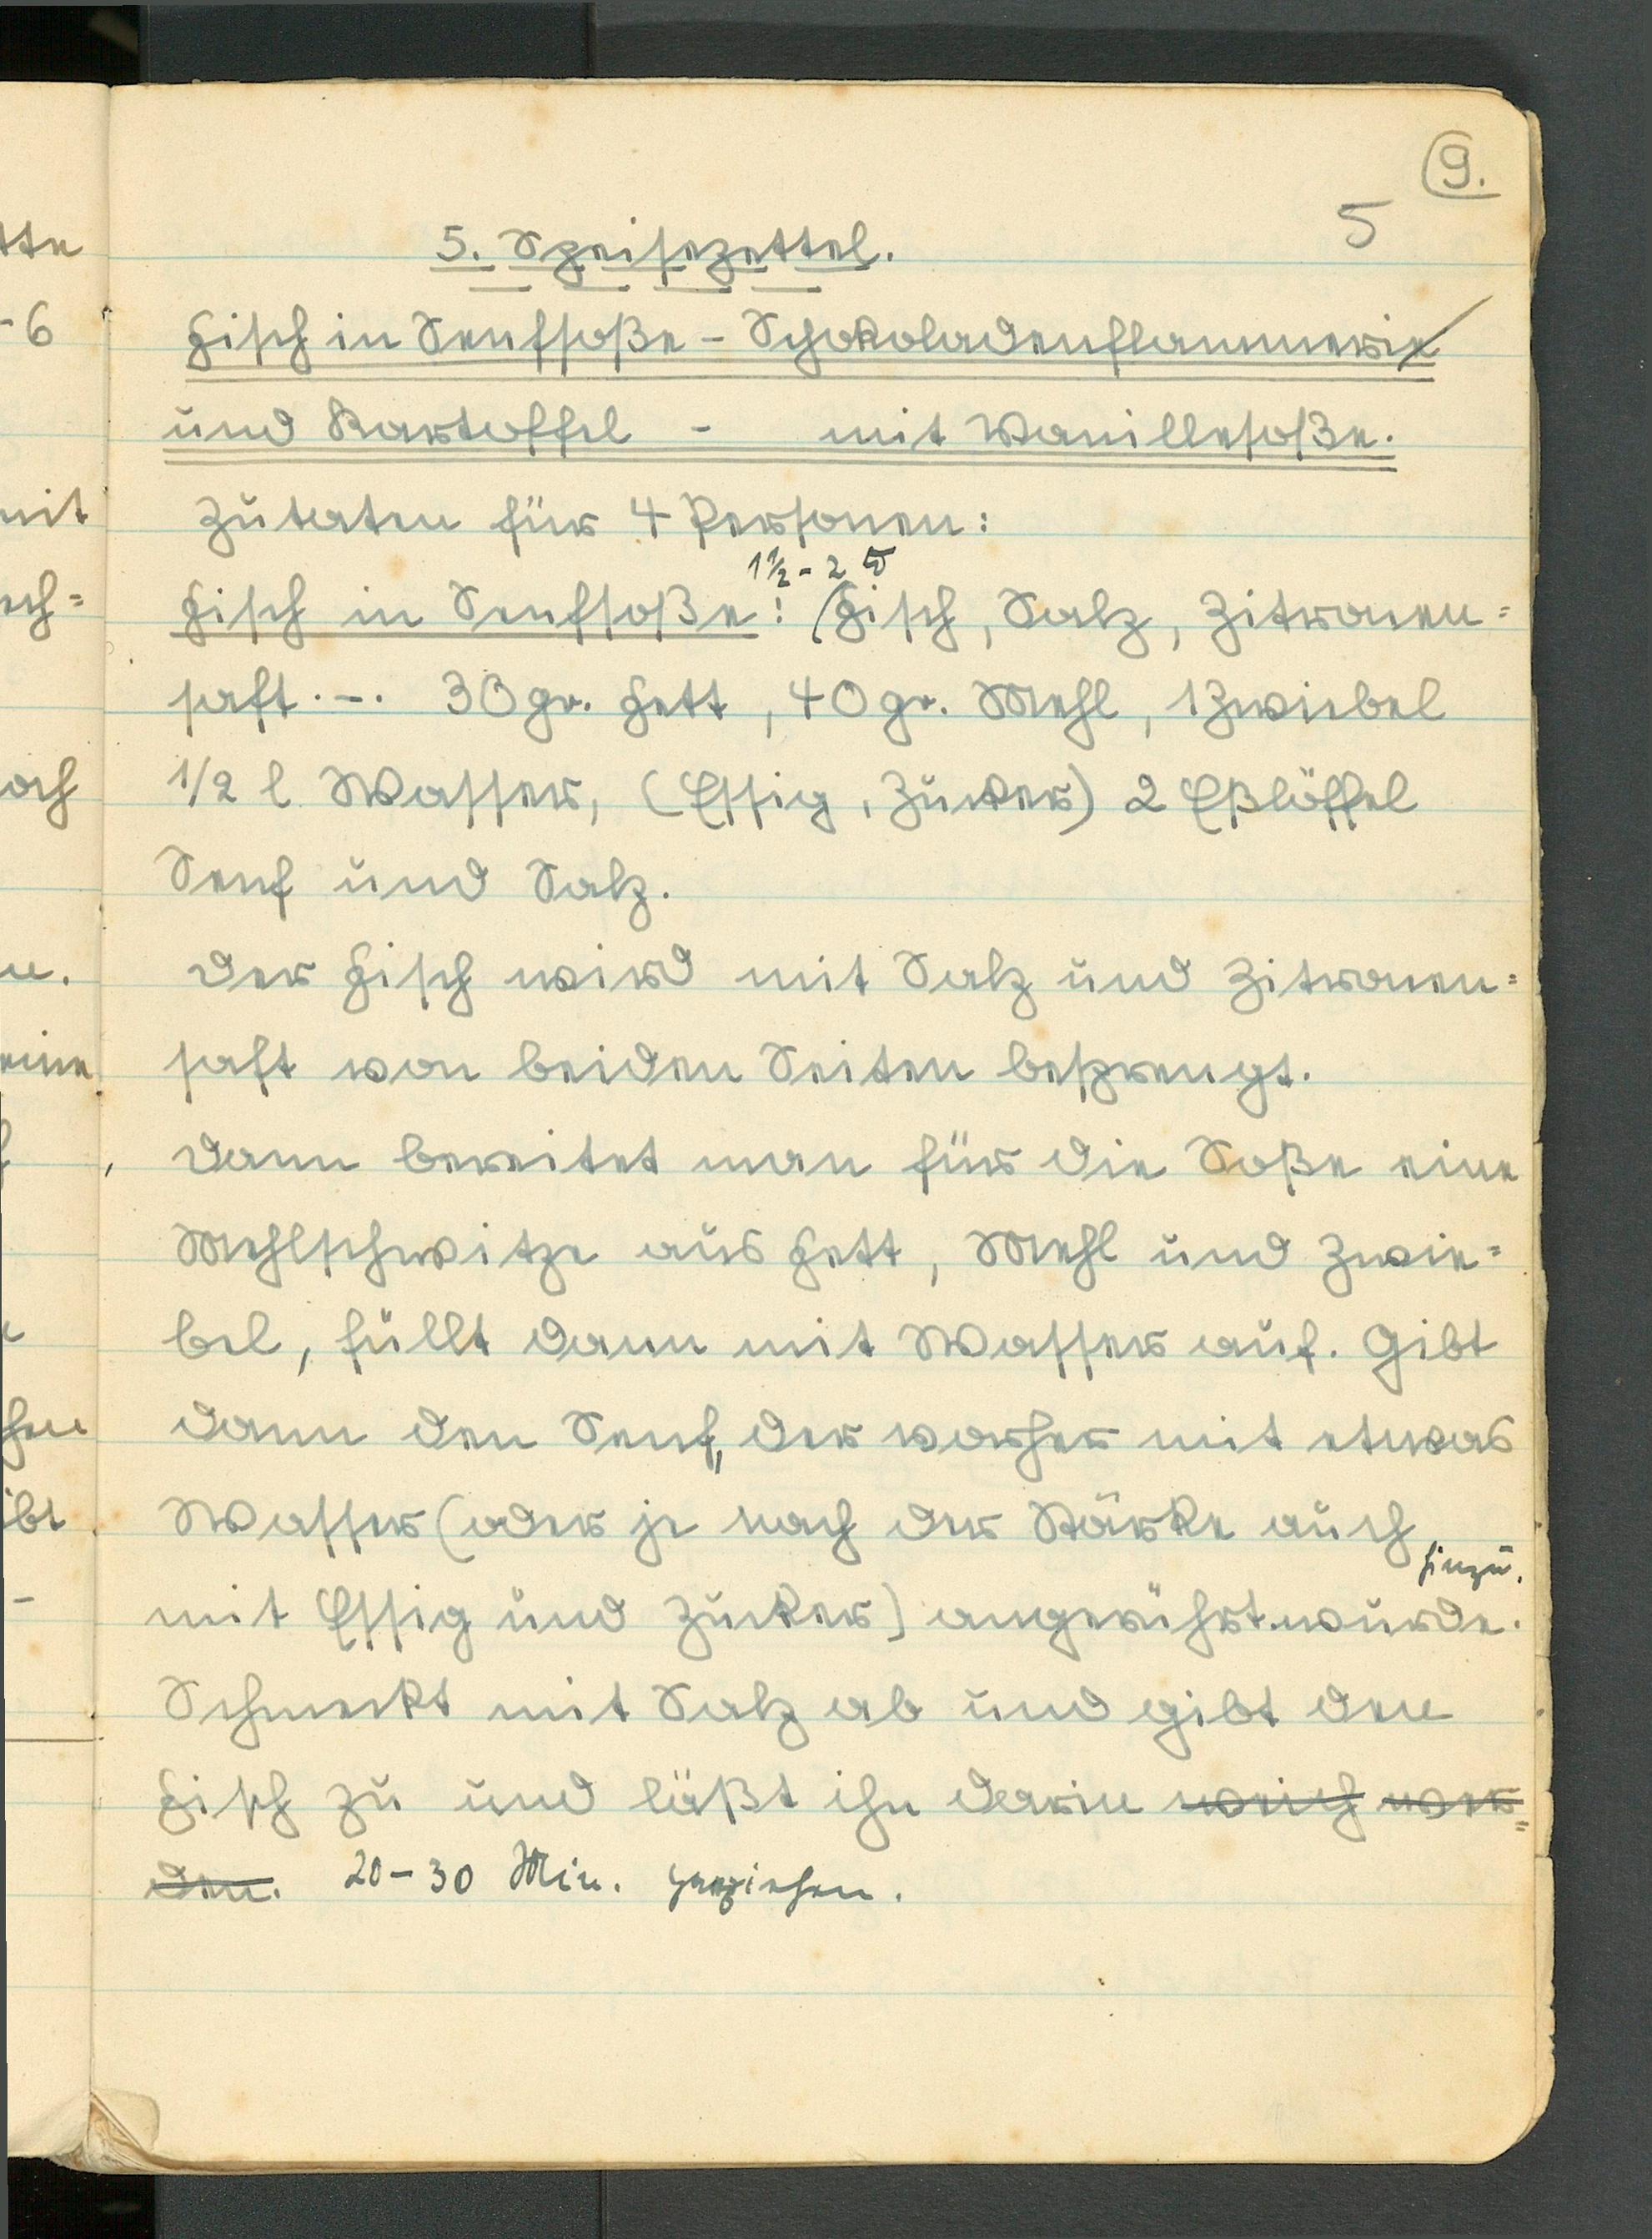 9.
5
5. Speisezettel.
Fisch in Senfsoße - Schokoladenflammerie
und Kartoffel - mit Vanillesoße.
Zutaten für 4 Personen:
1½ - 2 ℔
Fisch in Senfsoße: (Fisch, Salz, Zitronen=
saft. -. 30 gr. Fett, 40 gr. Mehl, 1 Zwiebel
1/2 l Wasser, (Essig, Zucker) 2 Eßlöffel
Senf und Salz.
Der Fisch wird mit Salz und Zitronen=
saft von beiden Seiten besprengt.
Dann bereitet man für die Soße eine
Mehlschwitze aus Fett, Mehl und Zwie=
bel, füllt dann mit Wasser auf. Gibt
dann den Senf, der vorher mit etwas
Wasser (oder je nach der Stärke auch
hinzu.
mit Essig und Zucker) angerührt wurde.
Schmeckt mit Salz ab und gibt den
Fisch zu und läßt ihn darin weich wer=
den. 20-30 Min. garziehen.